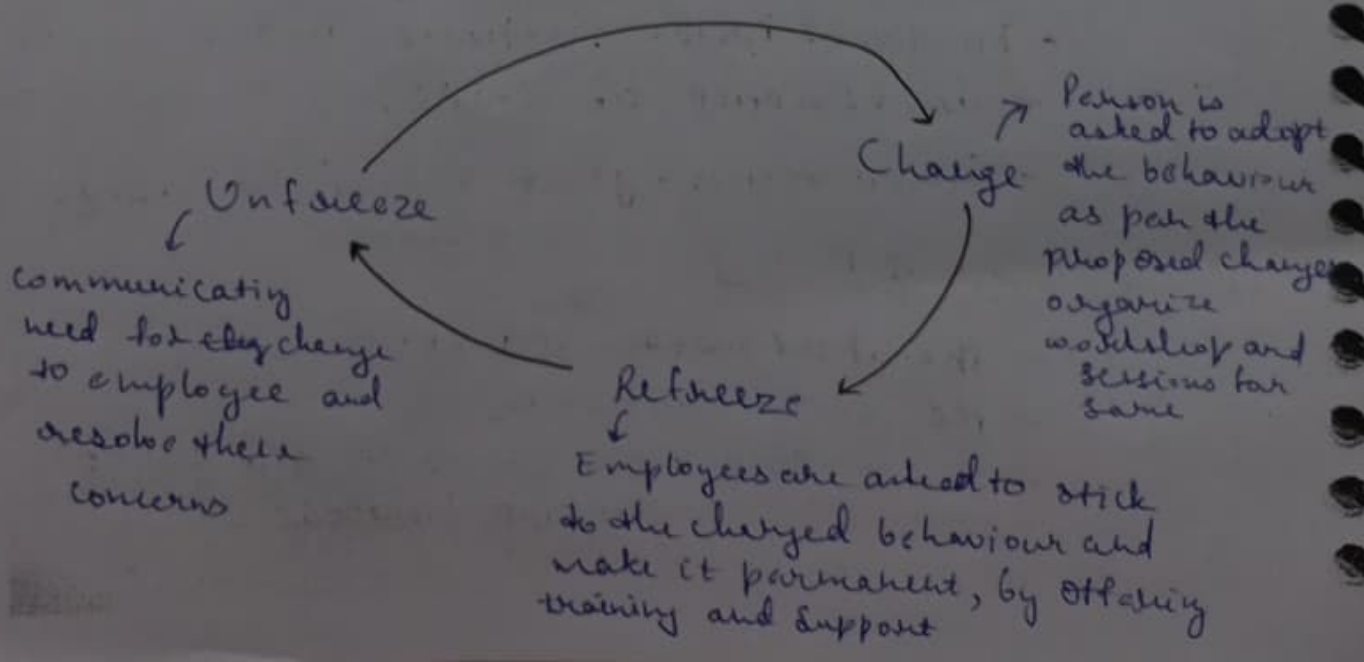 Unfreeze
communicating
need for change
to employee and
resolve their
concerns
Change
Person is
asked to adopt
the behaviour
as per the
proposed changes
organize
workshop and
sessions for
same
Refreeze
Employees are asked to stick
to the changed behaviour and
make it permanent, by offering
training and support